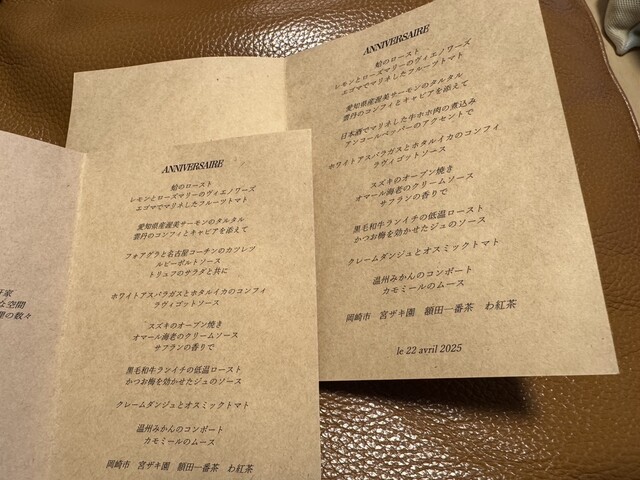 ANNIVERSAIRE
蛤のロースト
レモンとローズマリーのヴィエノワーズ
エゴマでマリネしたフルーツトマト
愛知県産渥美サーモンのタルタル
雲丹のコンフィとキャビアを添えて
日本酒でマリネした牛ホホ肉の煮込み
アンコールペッパーのアクセントで
ホワイトアスパラガスとホタルイカのコンフィ
ラヴィゴットソース
スズキのオーブン焼き
オマール海老のクリームソース
サフランの香りで
黒毛和牛ランイチの低温ロースト
かつお梅を効かせたジュのソース
クレームダンジュとオスミックトマト
温州みかんのコンポート
カモミールのムース
岡崎市 宮ザキ園 額田一番茶 わ紅茶
le 22 avril 2025
ANNIVERSAIRE
蛤のロースト
レモンとローズマリーのヴィエノワーズ
エゴマでマリネしたフルーツトマト
愛知県産渥美サーモンのタルタル
雲丹のコンフィとキャビアを添えて
フォアグラと名古屋コーチンのカツレツ
ルビーポルトソース
トリュフのサラダと共に
ホワイトアスパラガスとホタルイカのコンフィ
ラヴィゴットソース
スズキのオーブン焼き
オマール海老のクリームソース
サフランの香りで
黒毛和牛ランイチの低温ロースト
かつお梅を効かせたジュのソース
クレームダンジュとオスミックトマト
温州みかんのコンポート
カモミールのムース
岡崎市 宮ザキ園 額田一番茶 わ紅茶
な空間
の数々